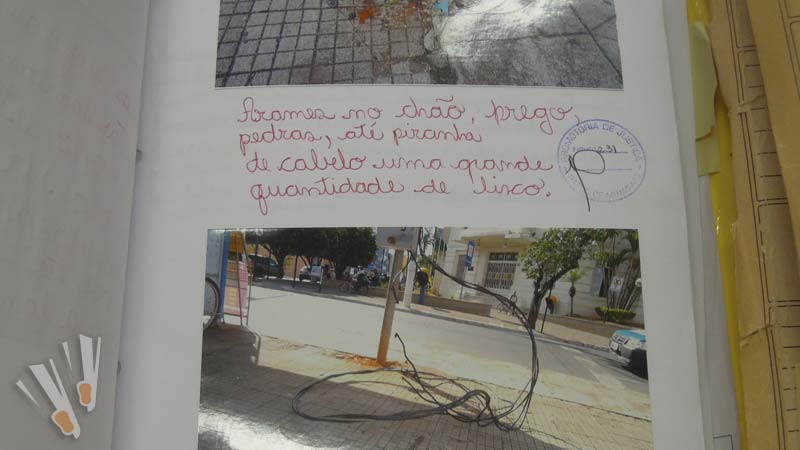 Arames no chão, prego,
pedras, até piranha
de cabelo uma grande
quantidade de lixo.
PROMOTORIA DE JUSTIÇA
231